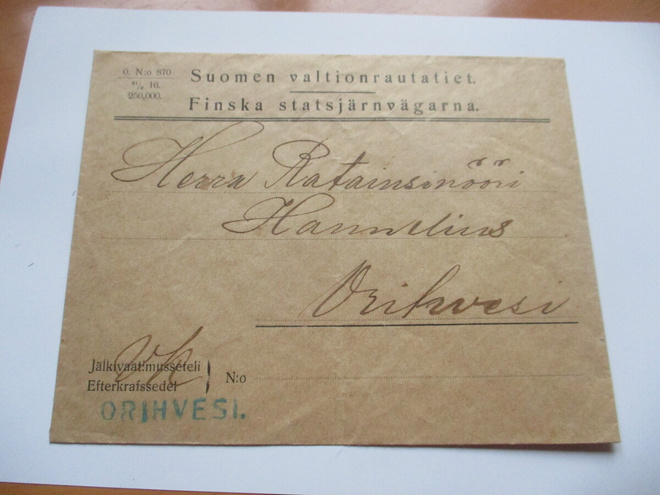 O. N:o 870
10.
250,000.
Suomen valtionrautatiet.
Finska statsjärnvägarna.
Herra Ratainsinööri
Hannelius
Orihvesi
Jälkivaatimusseteli
Efterkrafssedel
N:o
ORIHVESI.